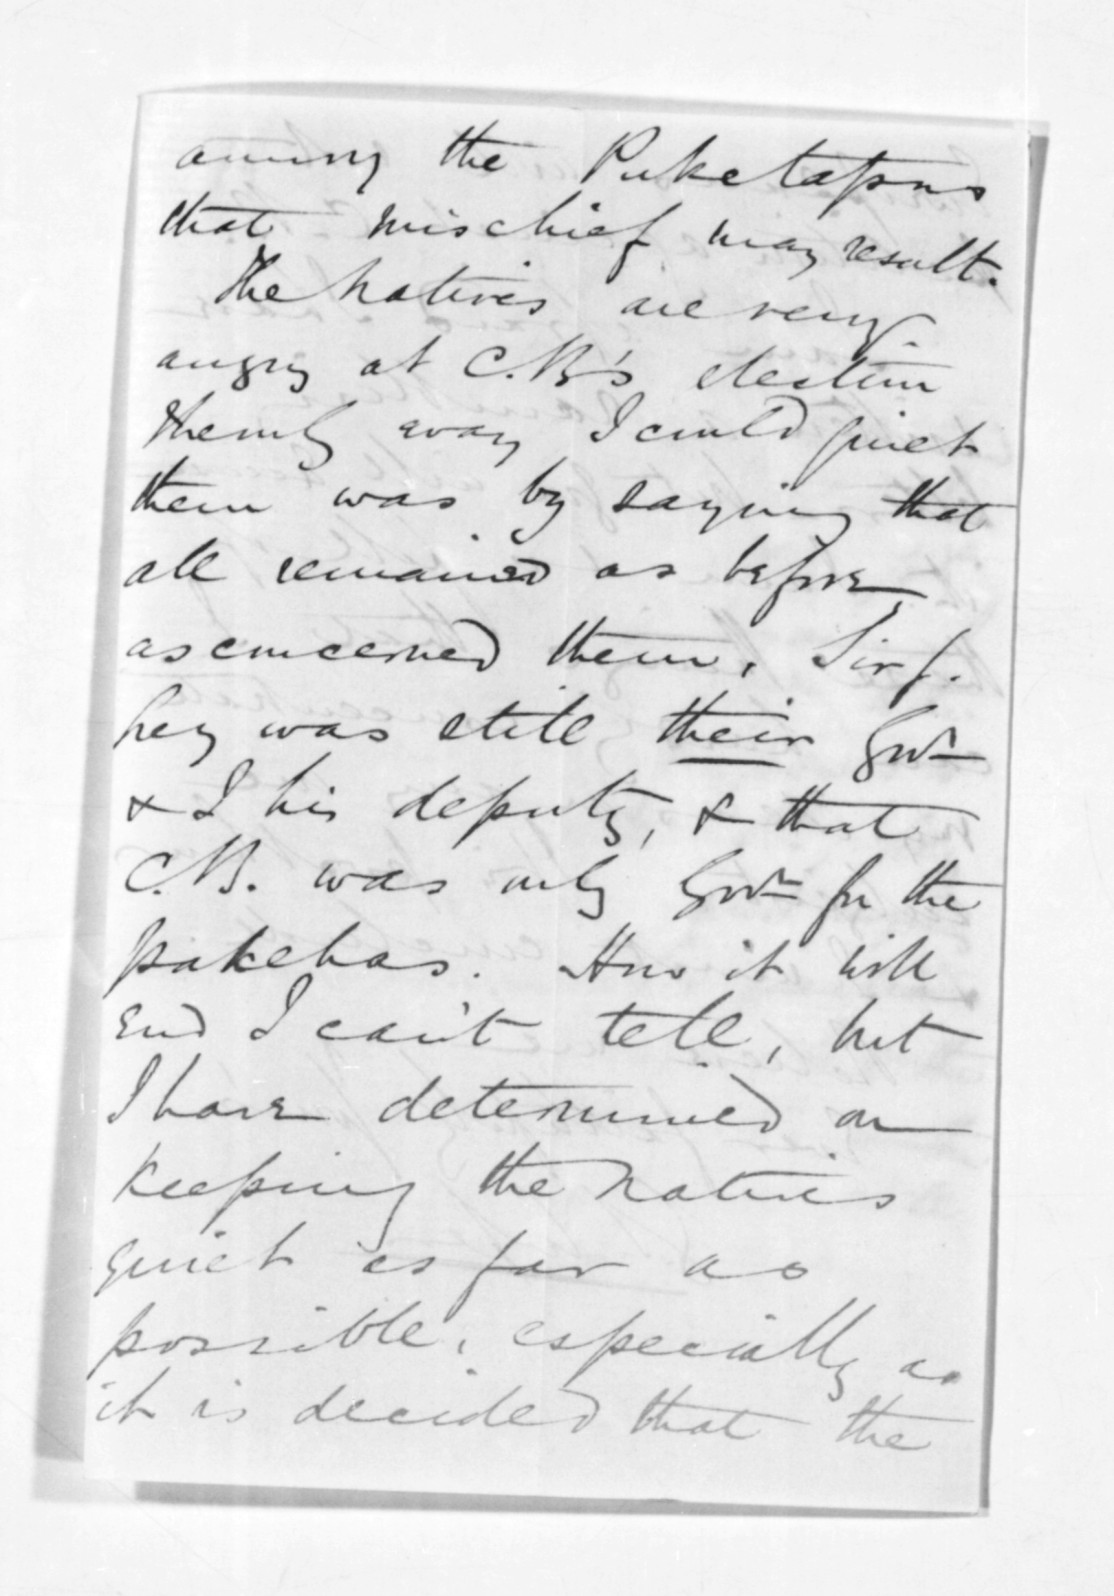 among the Puketapus
that mischief may result.
The Natives are very
angry at C.B's election
the only way I could quiet
them was by saying that
all remained as before
as concerned them, Sir G.
Grey was still their Govr
& I his deputy, & that
C.B. was only Govr for the
pakehas. How it will
end I can't tell, but
I have determined on
keeping the Natives
quiet as far as
possible, especially as
it is decided that the